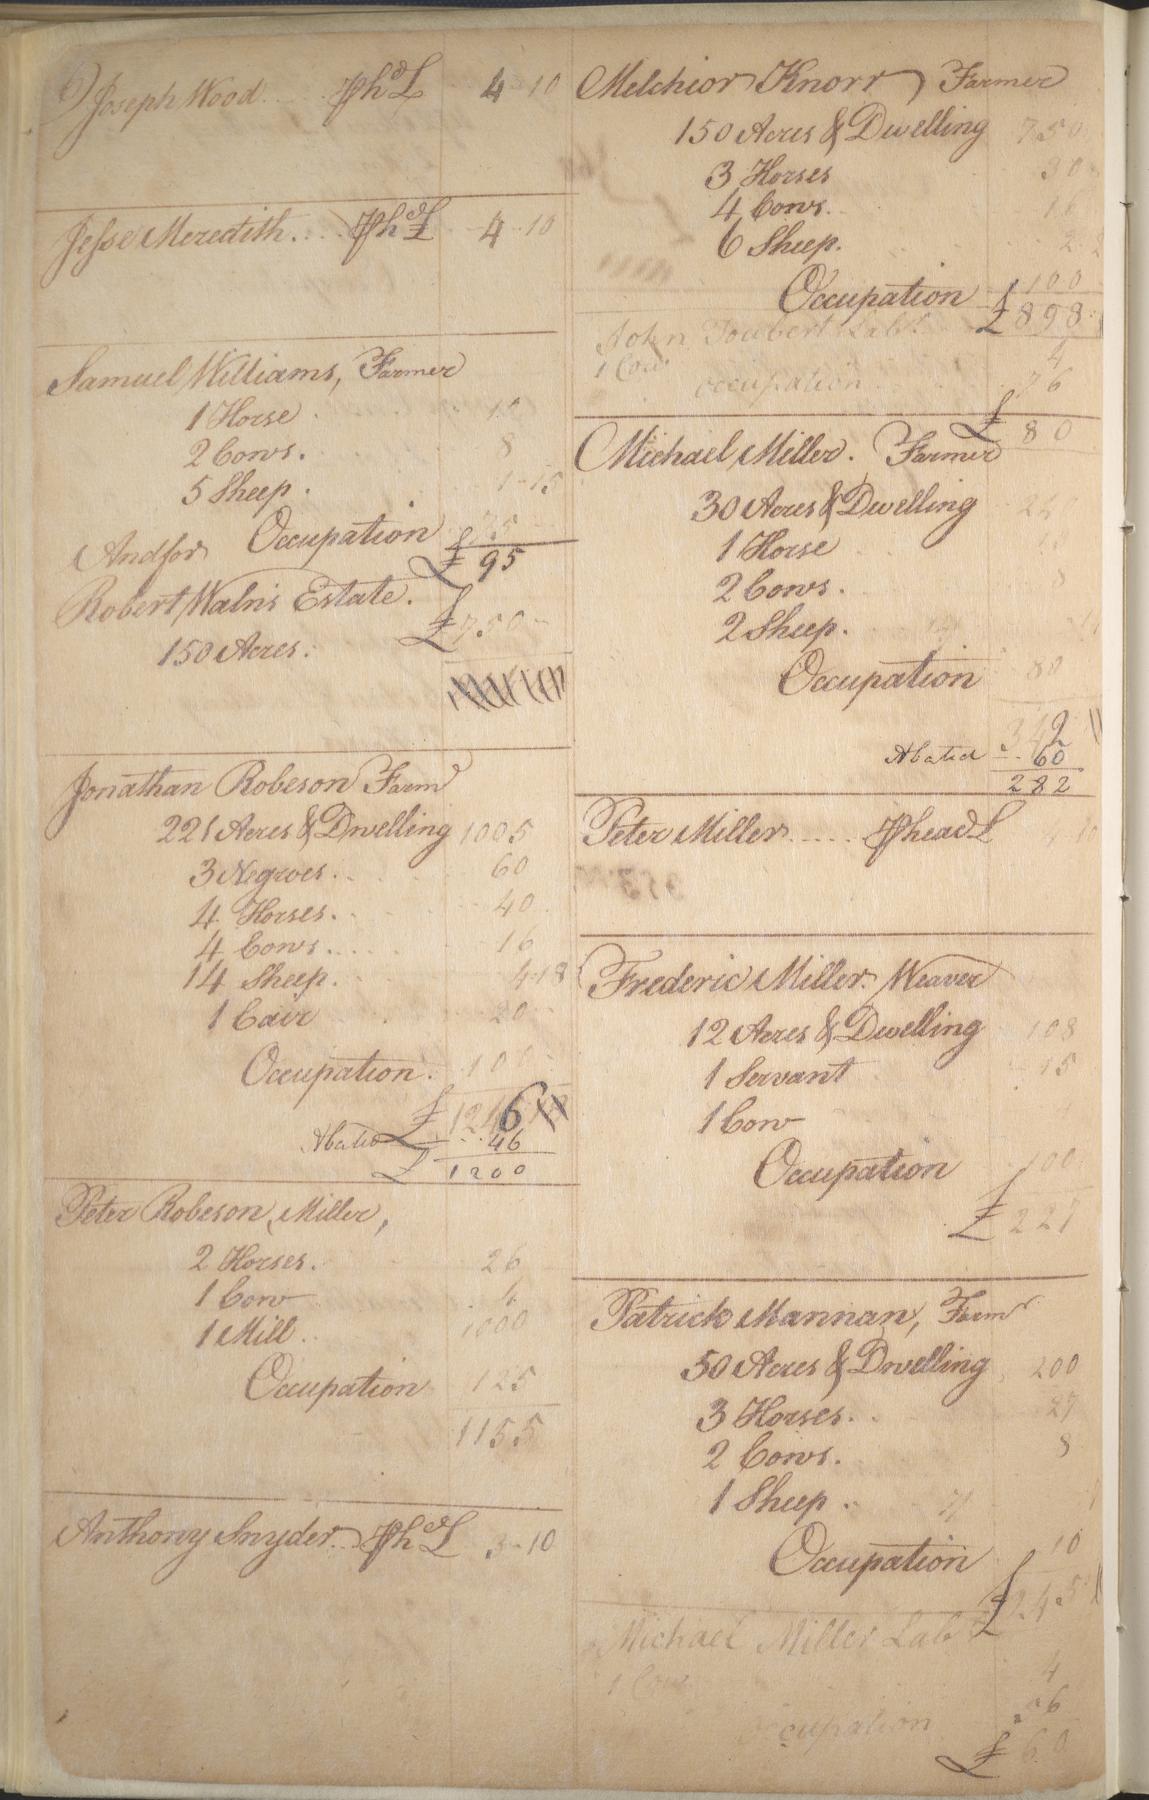 6)
Joseph Wood ... Pr hd £ 4 10
Jesse Meredith .... Pr hd £ 4 10
Samuel Williams, Farmer
1 Horse
2 Cows. 8
5 Sheep. 1-15
Occupation 75
£ 95
And for
Robert Waln's Estate.
150 Acres. £ 750
Jonathan Robeson Farmr
221 Acres & Dwelling 1005
3 Negroes. 60
4 Horses. 40
4 Cows 16
14 Sheep. 4-18
1 Cair 20
Occupation. 100
£ 1246
Abated 46
£ 1200
Peter Robeson, Miller,
2 Horses. 26
1 Cow 4
1 Mill. 1000
Occupation 125
1155
Anthony Snyder. Pr hd £ 3-10
Melchior Knorr, Farmer
150 Acres & Dwelling 750
3 Horses 30
4 Cows. 16
6 Sheep. 2
Occupation 100
£ 898
John Labr
1 Cow 4
occupation 76
£ 80
Michael Miller. Farmer
30 Acres & Dwelling
1 Horse
2 Cows. 8
2 Sheep.
Occupation 80
342
Abated 60
282
Peter Miller ..... Pr head £
Frederic Miller. Weaver
12 Acres & Dwelling 108
1 Servant 15
1 Cow
Occupation 100
£ 227
Patrick Mannan, Farmr
50 Acres & Dwelling 200
3 Horses. 27
2 Cows. 8
1 Sheep
Occupation 10
£ 245
Michael Miller Labr
1 Cow 4
£ 60